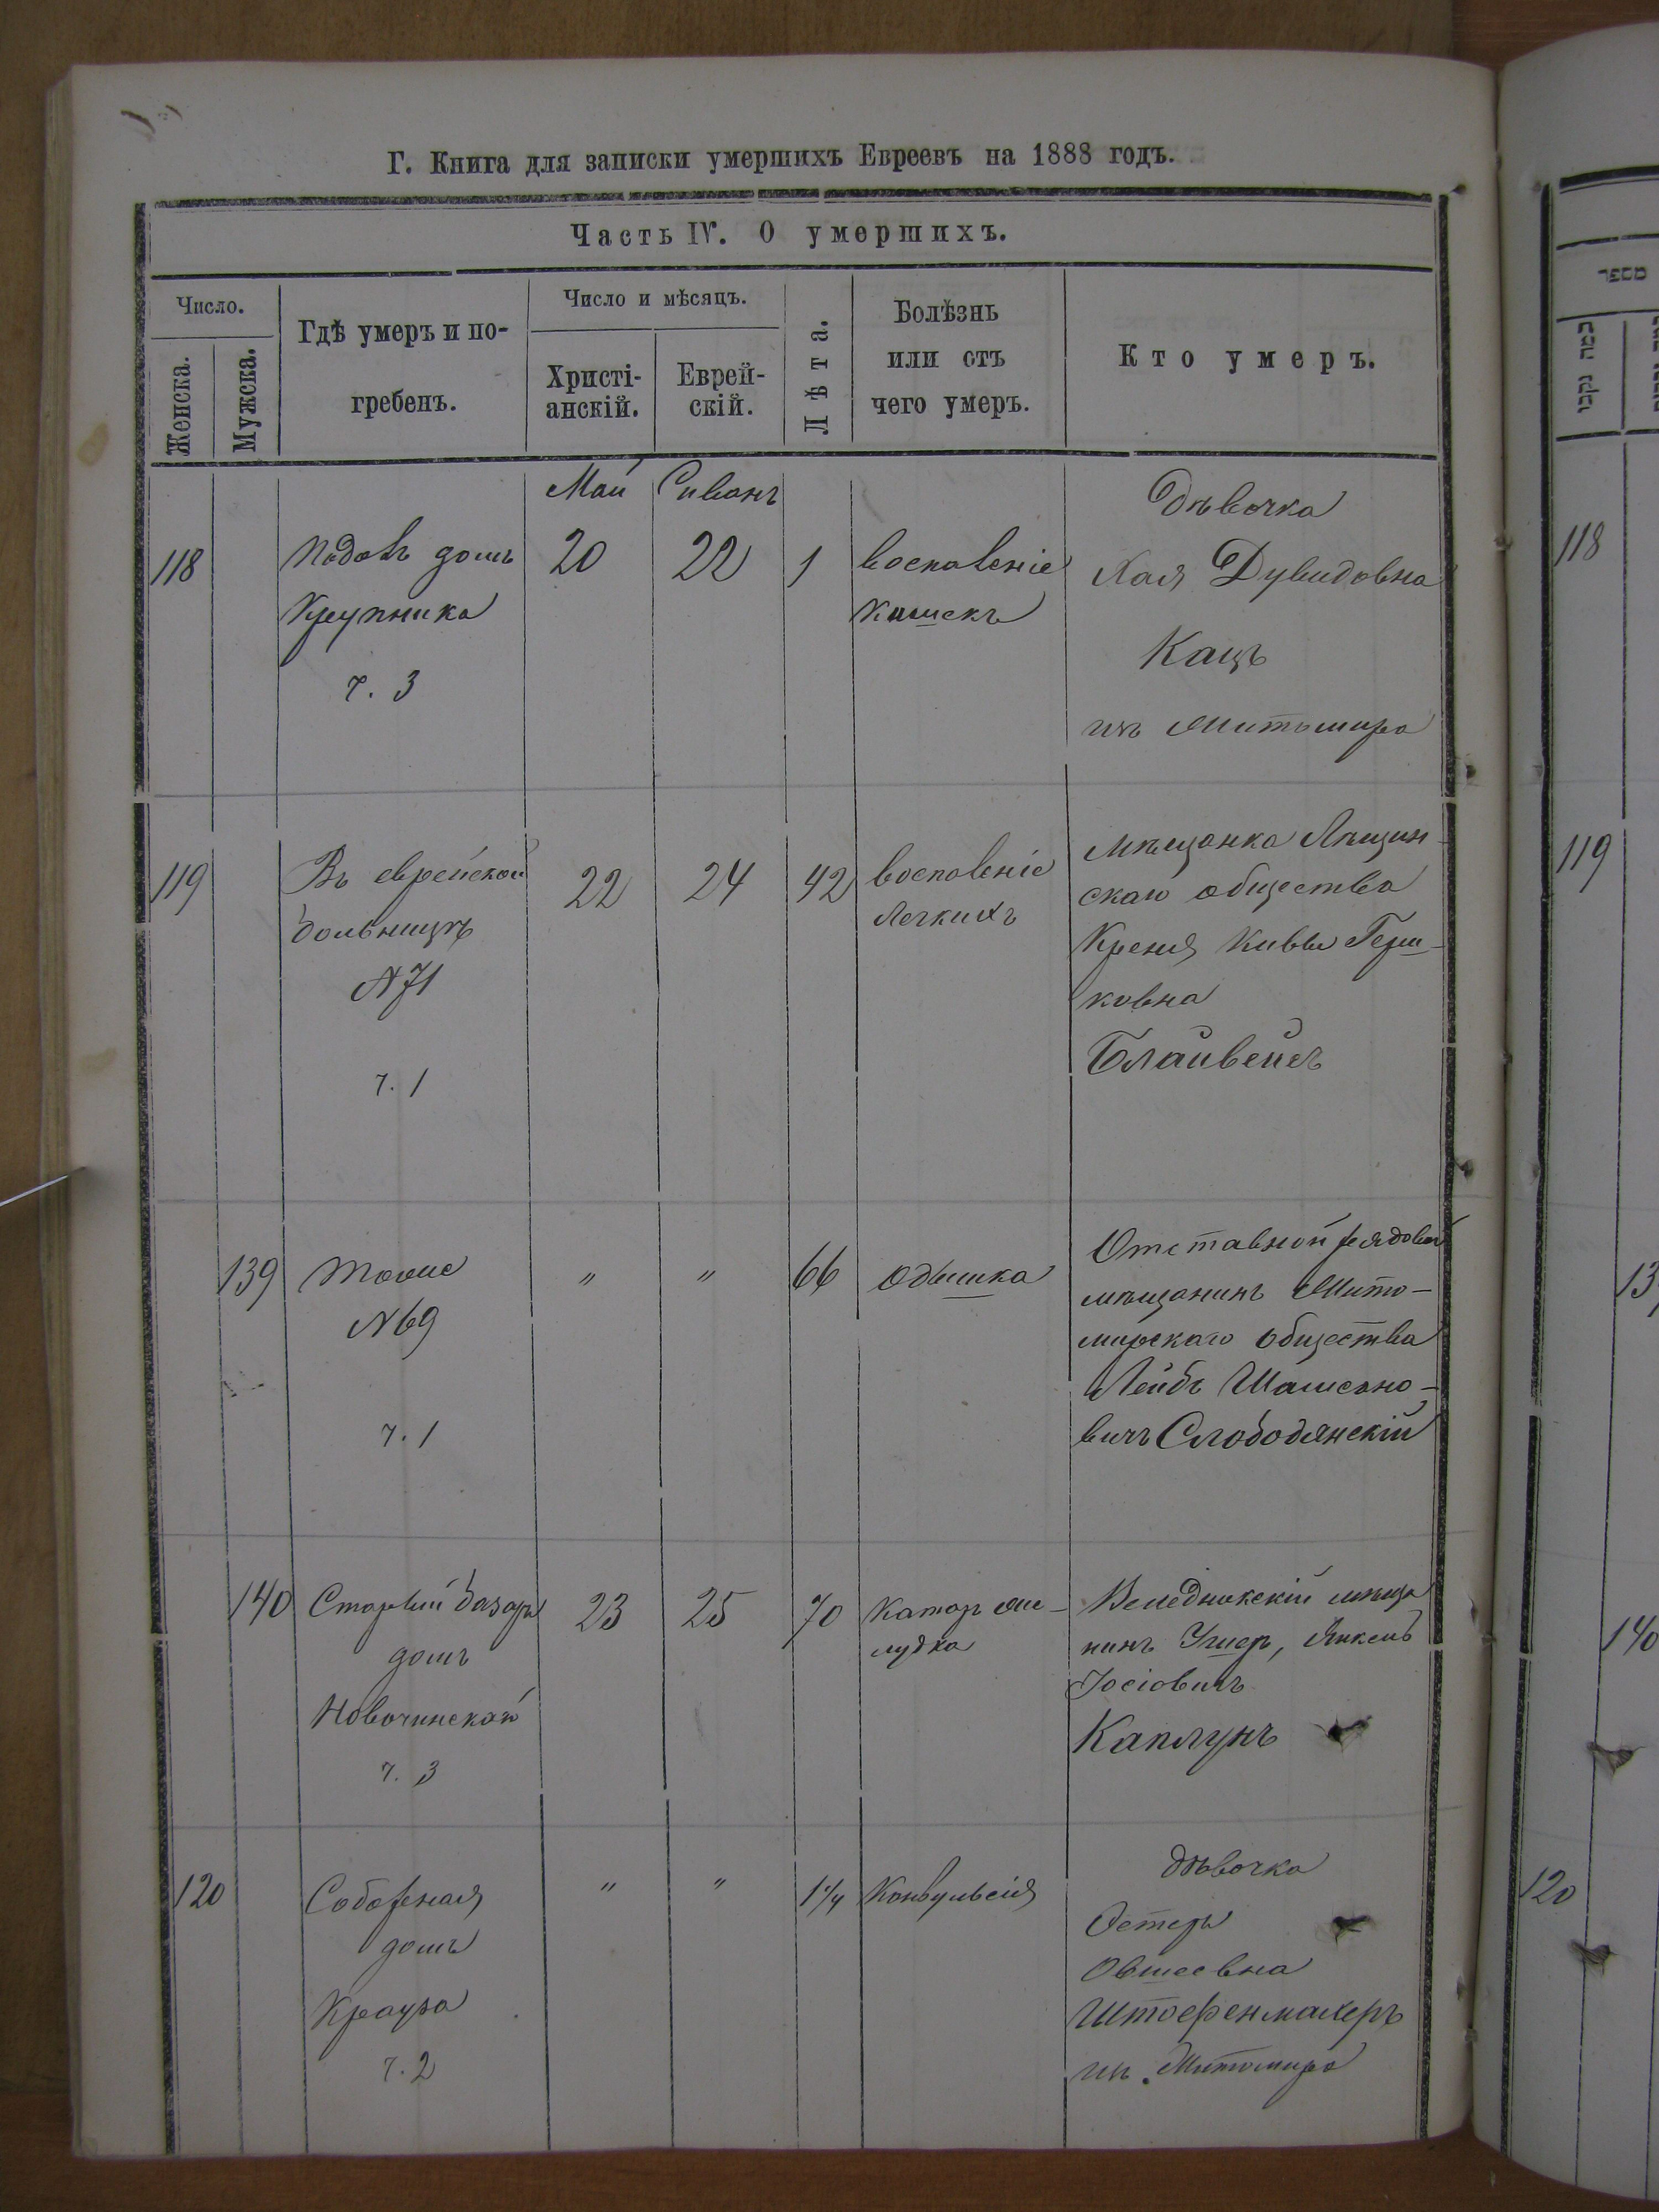 Г. Книга для записки умершихъ Евреевъ на 1888 годъ.
Часть IV. О умершихъ.
Число.
Женска.
Мужска.
Гдѣ умеръ и по-
гребенъ.
Число и мѣсяцъ.
Христі-
анскій.
Еврей-
скій.
Лѣта.
Болѣзнь
или отъ
чего умеръ.
Кто умеръ.
Май Сиванъ
118
домъ
Крупника
ч. 3
20
22
1
воспаленіе
кишекъ
Дѣвочка
Хая Дувидовна
Кацъ
изъ Житомира
119
Въ еврейской
больницѣ
N 71
ч. 1
22
24
42
воспаленіе
легкихъ
мѣщанка
скаго общества
Креня Киввы Герш-
ковна
Блайвейсъ
139
тоже
N 69
ч. 1
"
"
66
одышка
Отставной рядовой
мѣщанинъ Жито-
мирскаго общества
Лейбъ Шамсоно-
вичъ Слободянскій
140
Старый базаръ
домъ
ч. 3
23
25
70
Катаръ же-
лудка
Веледникскій мѣща
нинъ Ушер, Янкель
Іосіовичъ
Каплунъ
120
Соборная
домъ
ч. 2
"
"
1 1/4
Конвульсія
дѣвочка
Эстеръ
Овшеевна
Штофенмахеръ
изъ Житомира
מספר
כמה נקבו
118
119
13
140
120